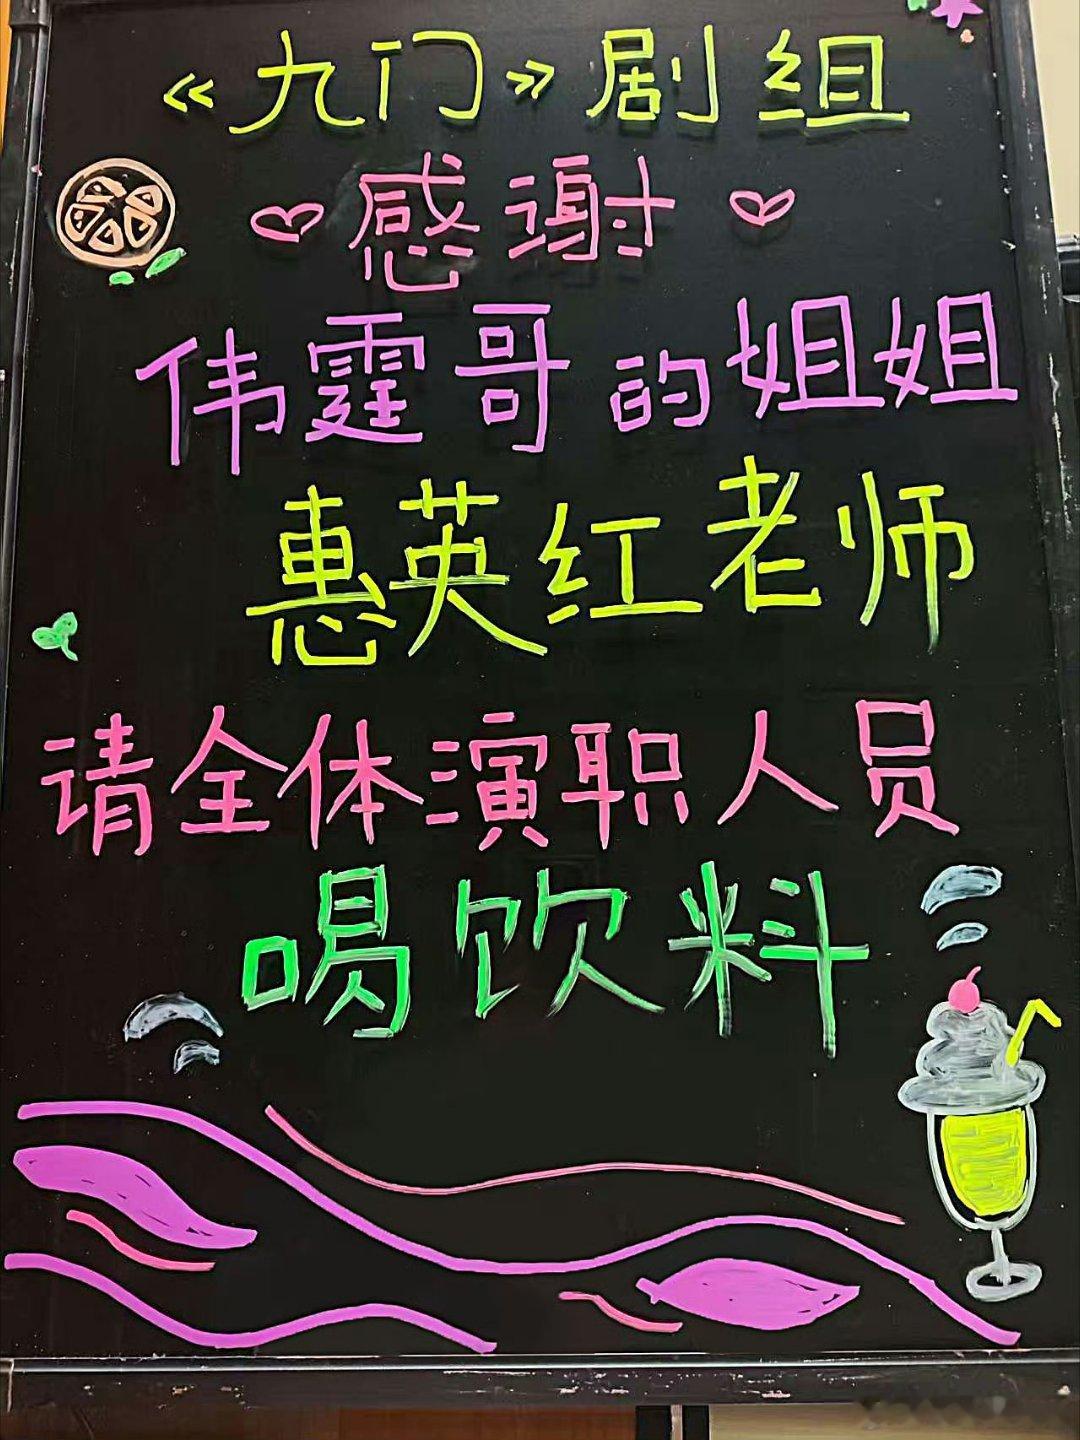 《九门》剧组
感谢
伟霆哥的姐姐
惠英红老师
请全体演职人员
喝饮料